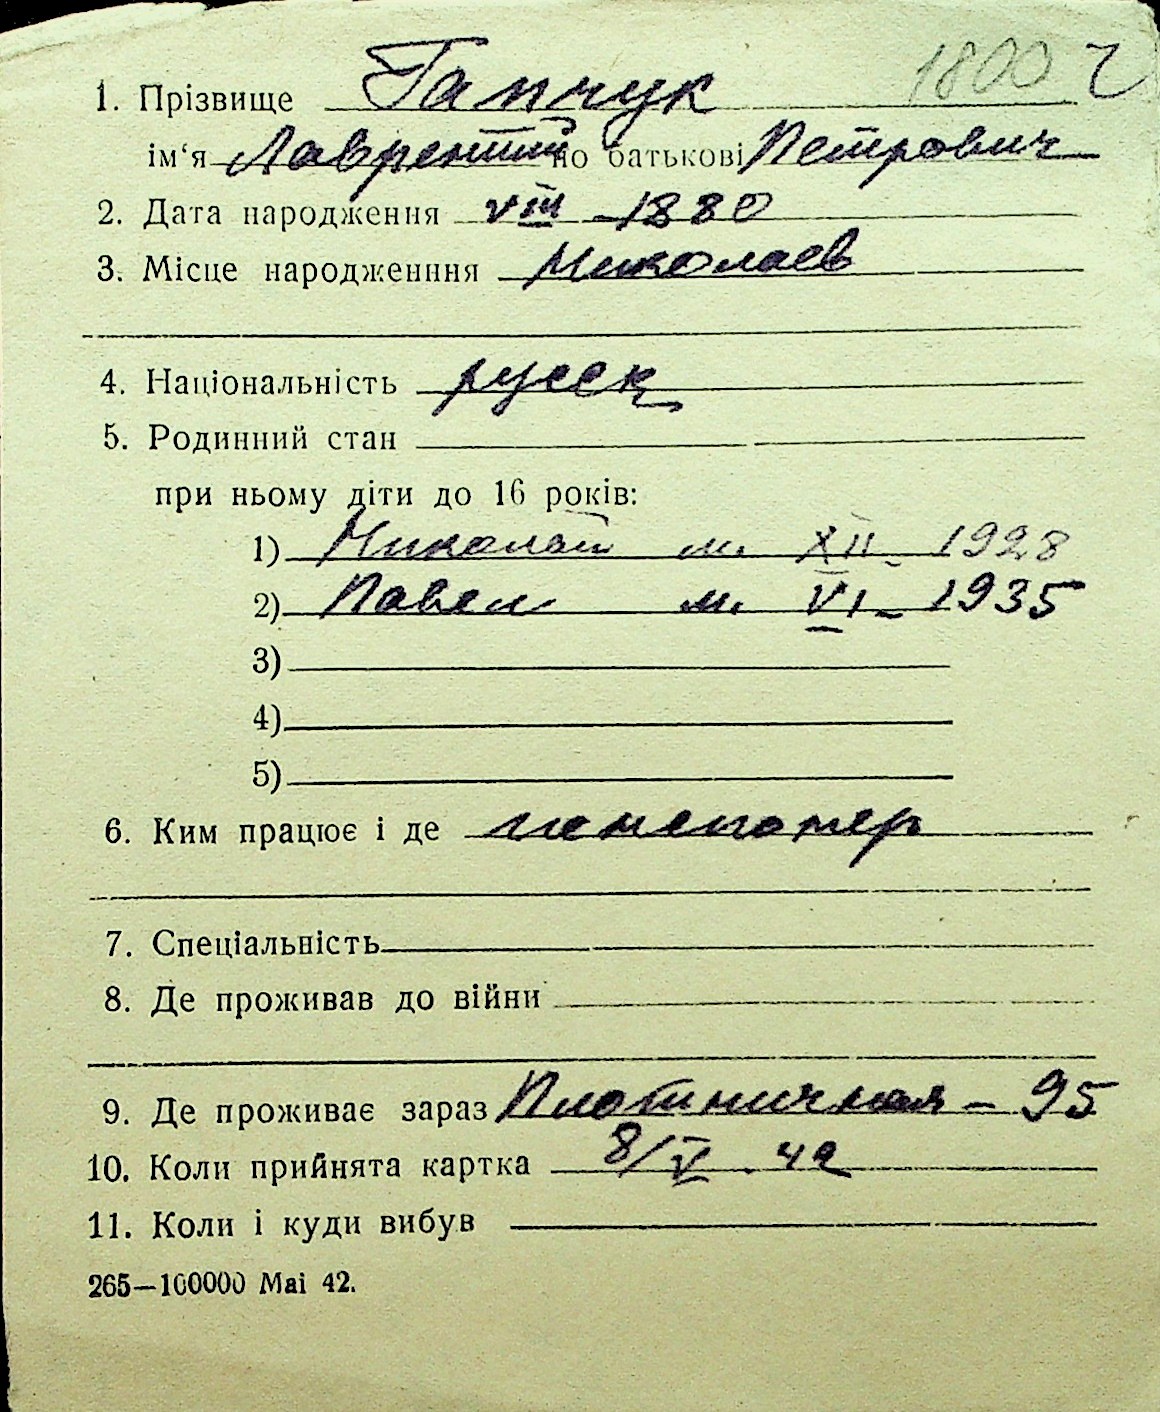 1800 г
1. Прізвище Гапчук
ім‘я Лаврентий по батькові Петрович
2. Дата народження VIII – 1880
3. Місце народженння Николаев
4. Національність русск
5. Родинний стан
при ньому діти до 16 років:
1) Николай м. XII – 1928
2) Павел м. VI – 1935
3)
4)
5)
6. Ким працює і де
7. Спеціальність
8. Де проживав до війни
9. Де проживає зараз Плотничная – 95
10. Коли прийнята картка 8/V . 42
11. Коли і куди вибув
265—100000 Mai 42.